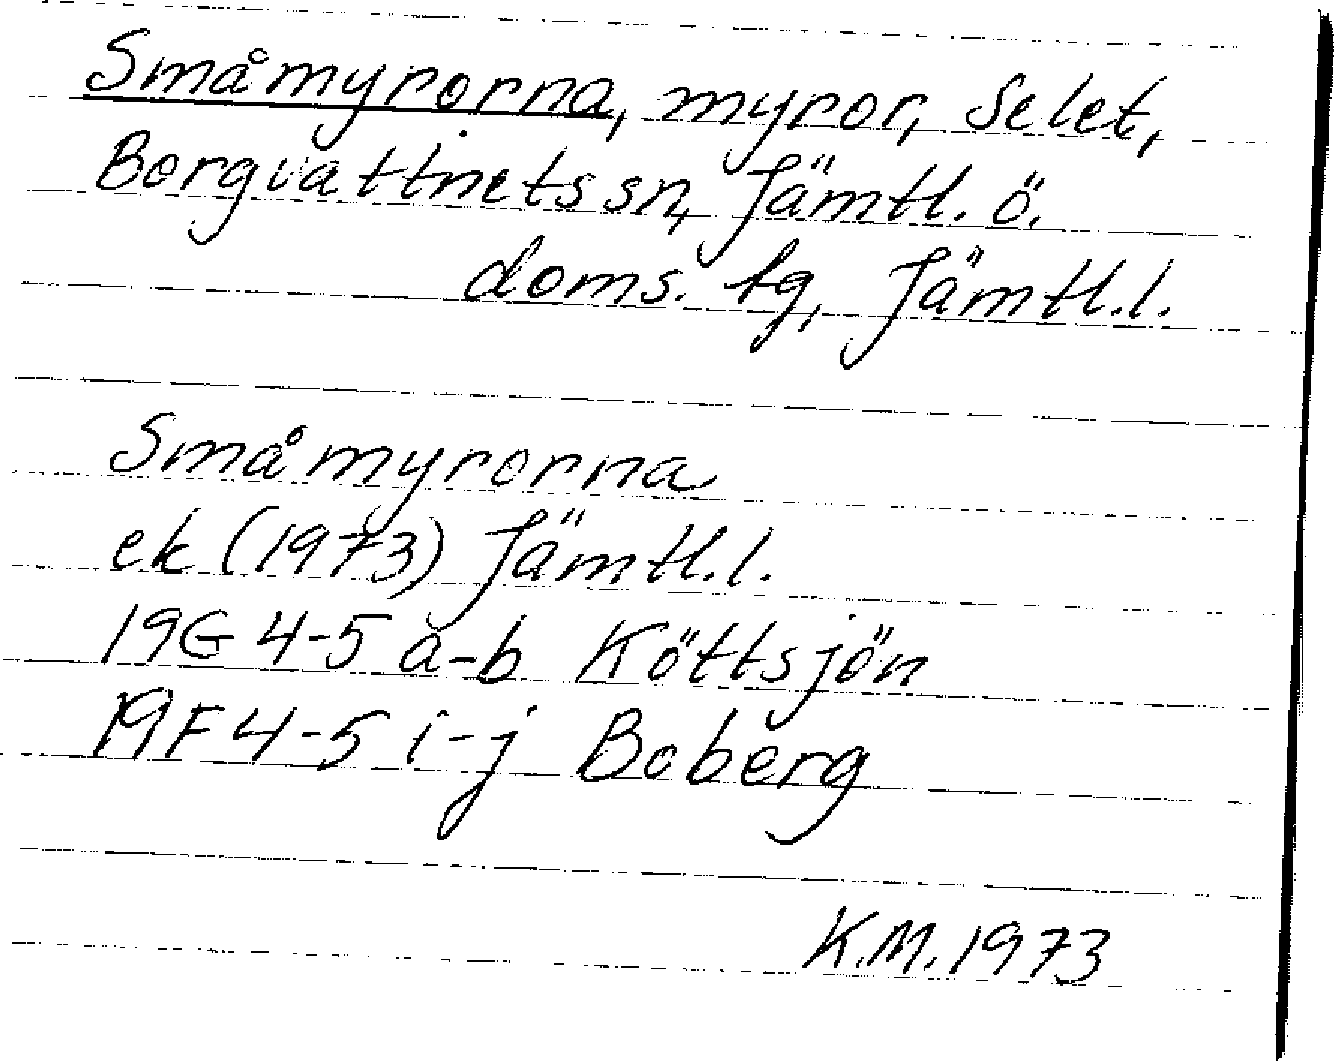 Småmyrorna, myror, Selet,
Borgvattnets sn, Jämtl. ö.
doms. tg, Jämtl.l.
Småmyrorna
ek (1973) Jämtl.l.
19G 4-5 a-b Köttsjön
19F 4-5 i-j Boberg
K.M. 1973